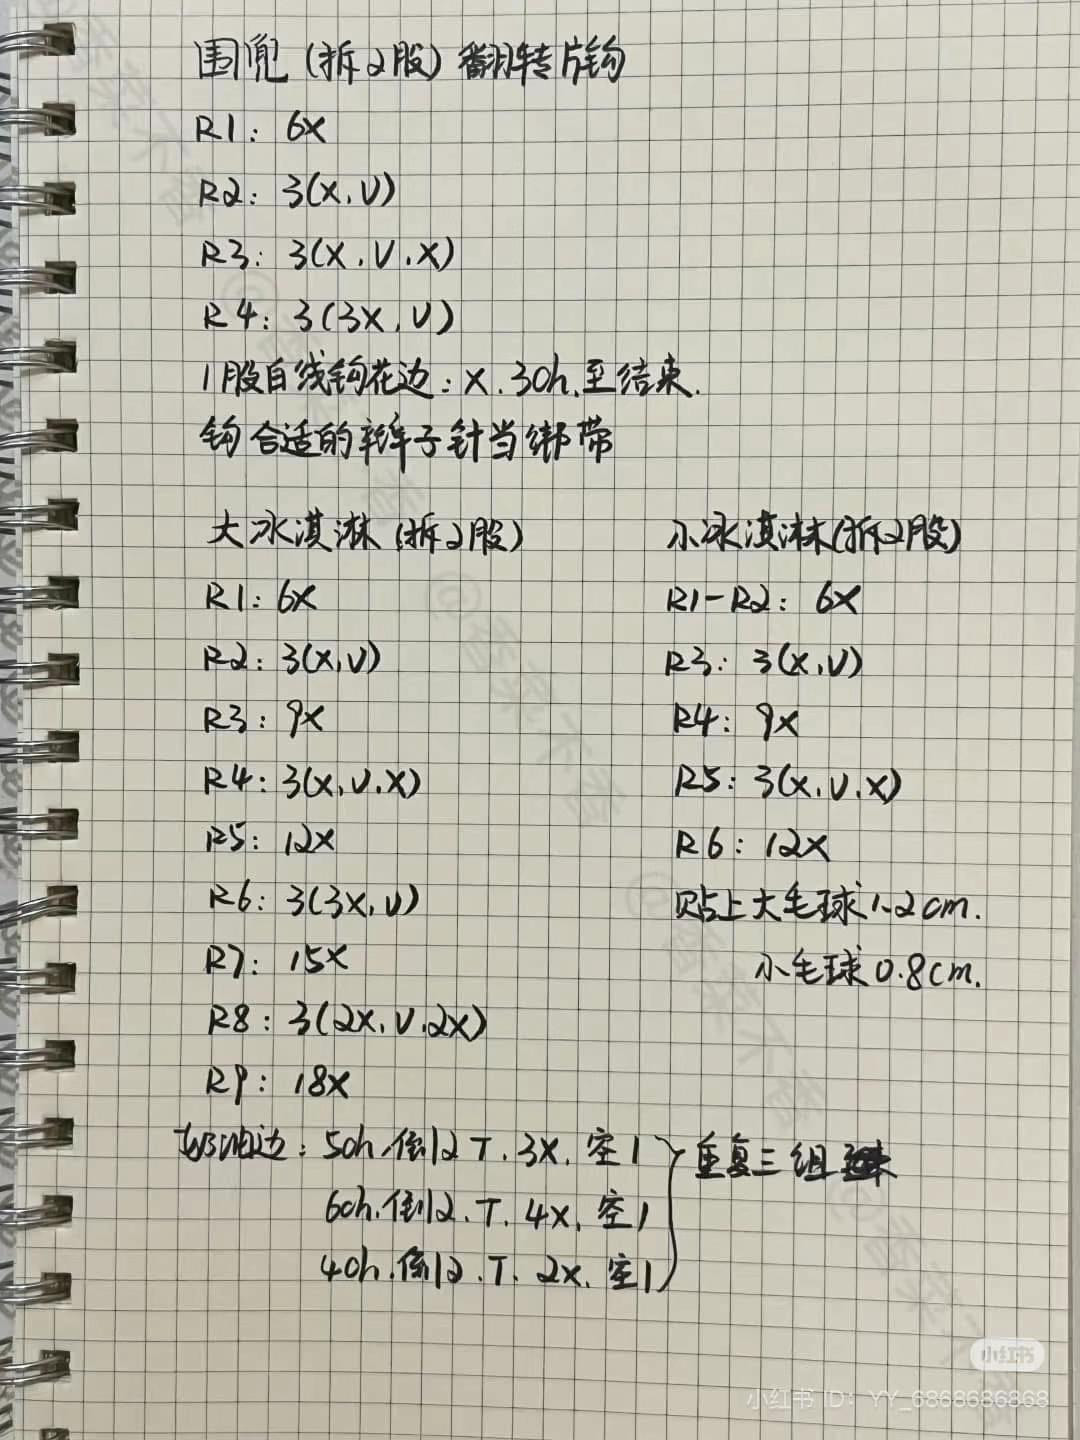 围兜(拆2股)翻转片钩
R1: 6X
R2: 3(X.V)
R3: 3(X.V.X)
R4: 3(3X,V)
1股白线钩花边: X.3ch.至结束.
钩合适的辫子针当绑带
大冰淇淋(拆2股)
R1: 6X
R2: 3(X,V)
R3: 9X
R4: 3(X,V.X)
R5: 12X
R6: 3(3X,V)
R7: 15X
R8: 3(2X,V.2X)
R9: 18X
奶油边: 5ch.倒2 T.3X.空1
6ch.倒2.T.4X.空1
4ch.倒2.T.2X.空1
重复三组
小冰淇淋(拆2股)
R1-R2: 6X
R3: 3(X,V)
R4: 9X
R5: 3(X.V.X)
R6: 12X
贴上大毛球1.2cm.
小毛球0.8cm.
@香菜不香
@香菜不香
@香菜不香
@香菜不香
小红书
小红书 ID: YY_6868686868